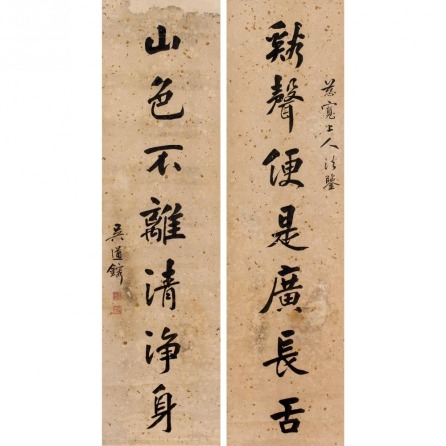 慈寬上人法鑒
谿聲便是廣長舌
山色不離清淨身
吳道鎔